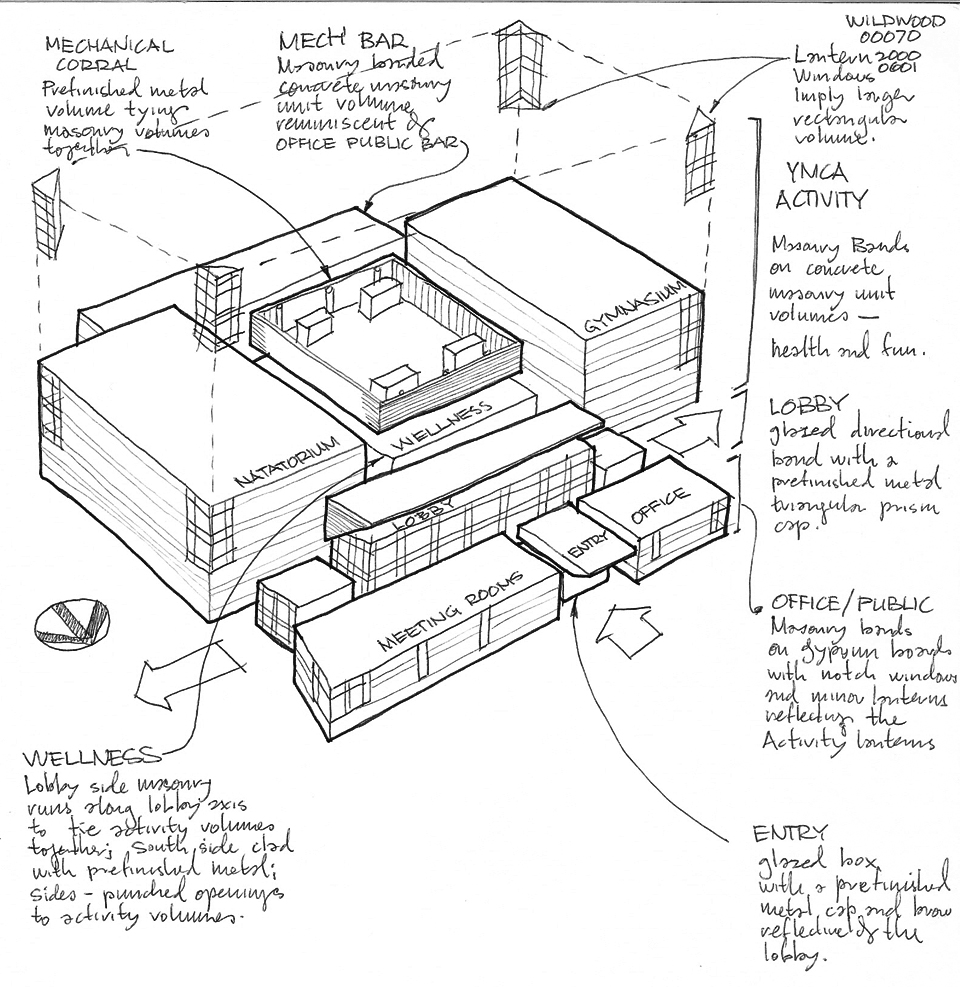 MECHANICAL
CORRAL
Prefinished metal
volume tying
masonry volumes
together
MECH BAR
Masonry banded
concrete masonry
unit volume
reminiscent of
OFFICE PUBLIC BAR
WILDWOOD
00070
2000
0601
Lantern
Windows
Imply larger
rectangular
volume.
YMCA
ACTIVITY
Masonry Bands
on concrete
masonry unit
volumes —
health and fun.
LOBBY
glazed directional
band with a
prefinished metal
triangular prism
cap.
OFFICE/PUBLIC
Masonry bands
on gypsum boards
with notch windows
and minor lanterns
reflecting the
Activity lanterns
ENTRY
glazed box
with a prefinished
metal cap and brow
reflective of the
lobby.
WELLNESS
Lobby side masonry
runs along lobby axis
to tie activity volumes
together; South side clad
with prefinished metal;
sides - punched openings
to activity volumes.
GYMNASIUM
NATATORIUM
WELLNESS
LOBBY
OFFICE
ENTRY
MEETING ROOMS